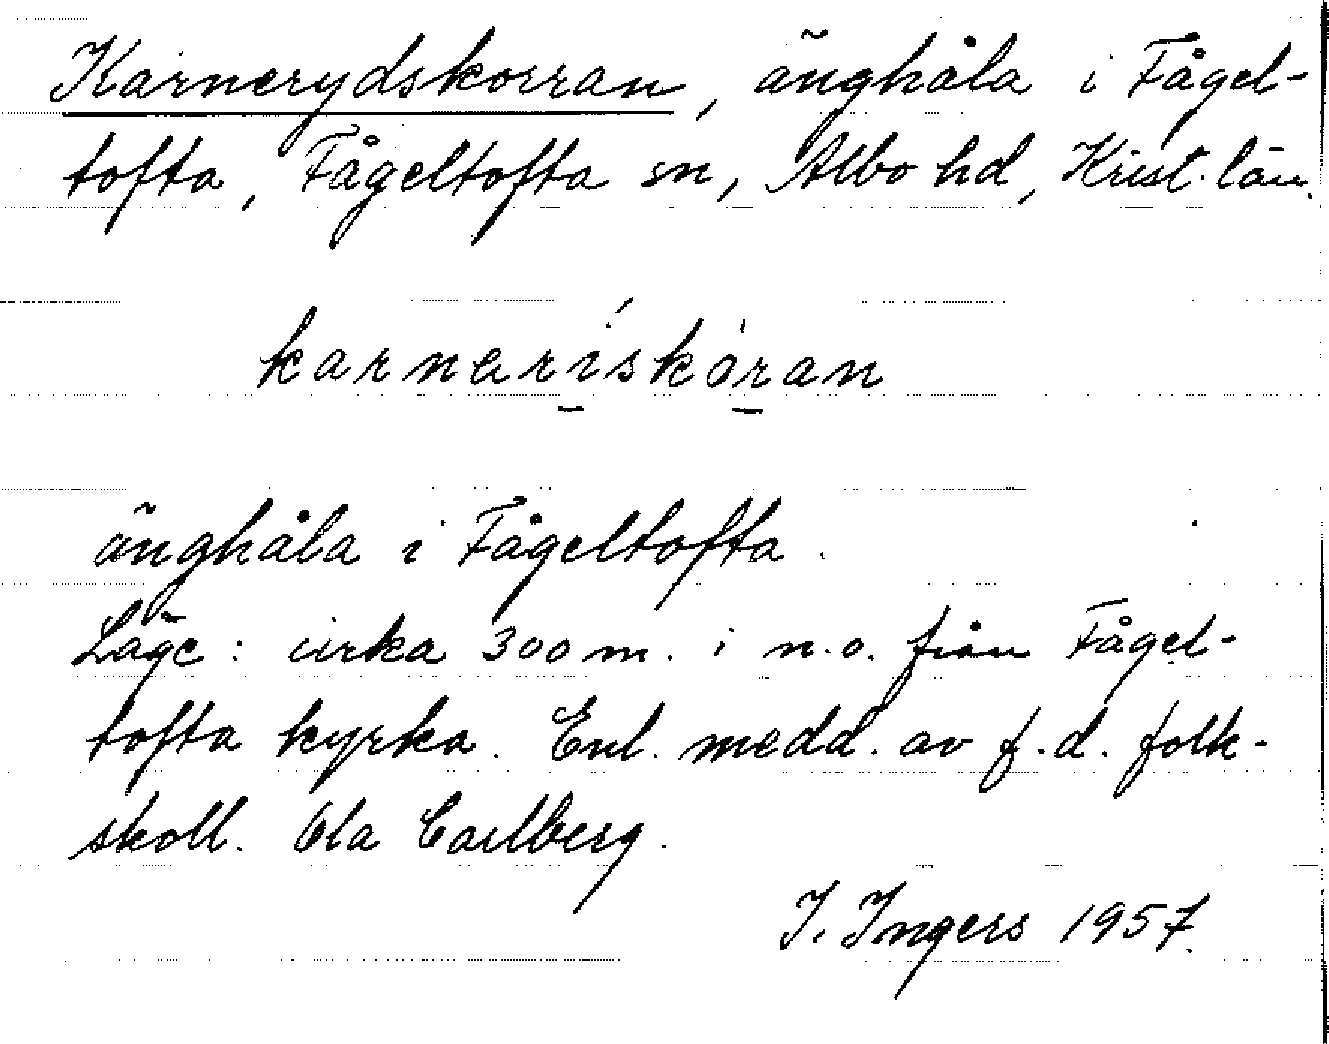 Karnerydskorran, änghåla i Fågel-
tofta, Fågeltofta sn, Albo hd, Krist. län.
karnarískòran
änghåla i Fågeltofta.
Läge: cirka 300 m. i n.o. från Fågel-
tofta kyrka. Enl. medd. av f.d. folk-
skoll. Ola Carlberg.
I. Ingers 1957.